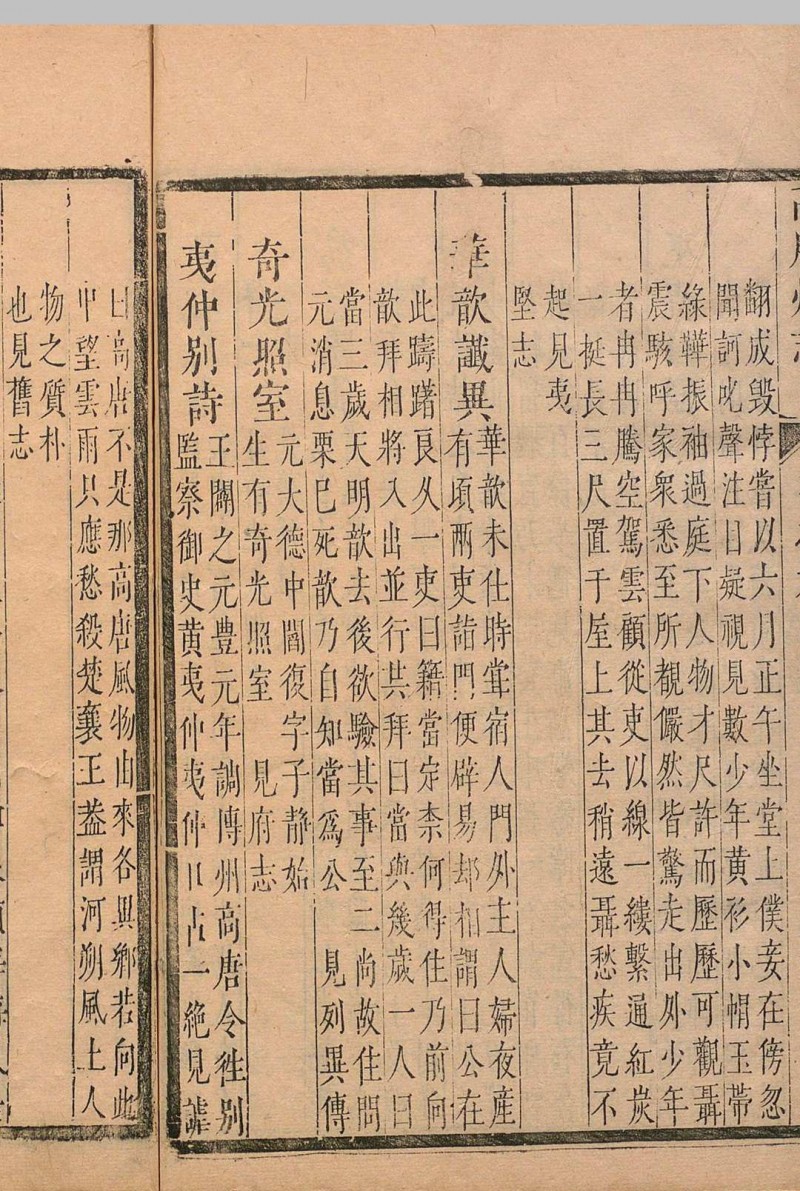 翻成毀悖嘗以六月正午坐堂上僕妾在傍忽
聞訶叱聲注目凝視見數少年黃衫小帽玉帶
綠鞾振袖過庭下人物才尺許而歷歷可觀聶
震駭呼家衆悉至所覩儼然皆驚走出外少年
者冉冉騰空駕雲顧從吏以線一縷繫通紅炭
一挺長三尺置于屋上其去稍遠聶愁疾竟不
起見夷
堅志
華歆讖異
華歆未仕時甞宿人門外主人婦夜產
有頃兩吏詣門便辟易却相謂曰公在
此躊躇良久一吏曰籍當定柰何得住乃前向
歆拜相將入出並行共拜曰當與幾歲一人曰
當三歲天明歆去後欲驗其事至二尚故住問
元消息栗巳死歆乃自知當爲公 見列異傳
奇光照室
元大德中閻復字子靜始
生有奇光照室 見府志
夷仲別詩
王闢之元豊元年調博州高唐令徃別
監察御史黃夷仲夷仲口占一絶見謔
曰高唐不是那高唐風物由來各異鄉若向此
中望雲雨只應愁殺楚襄王葢謂河朔風土人
物之質朴
也見舊志